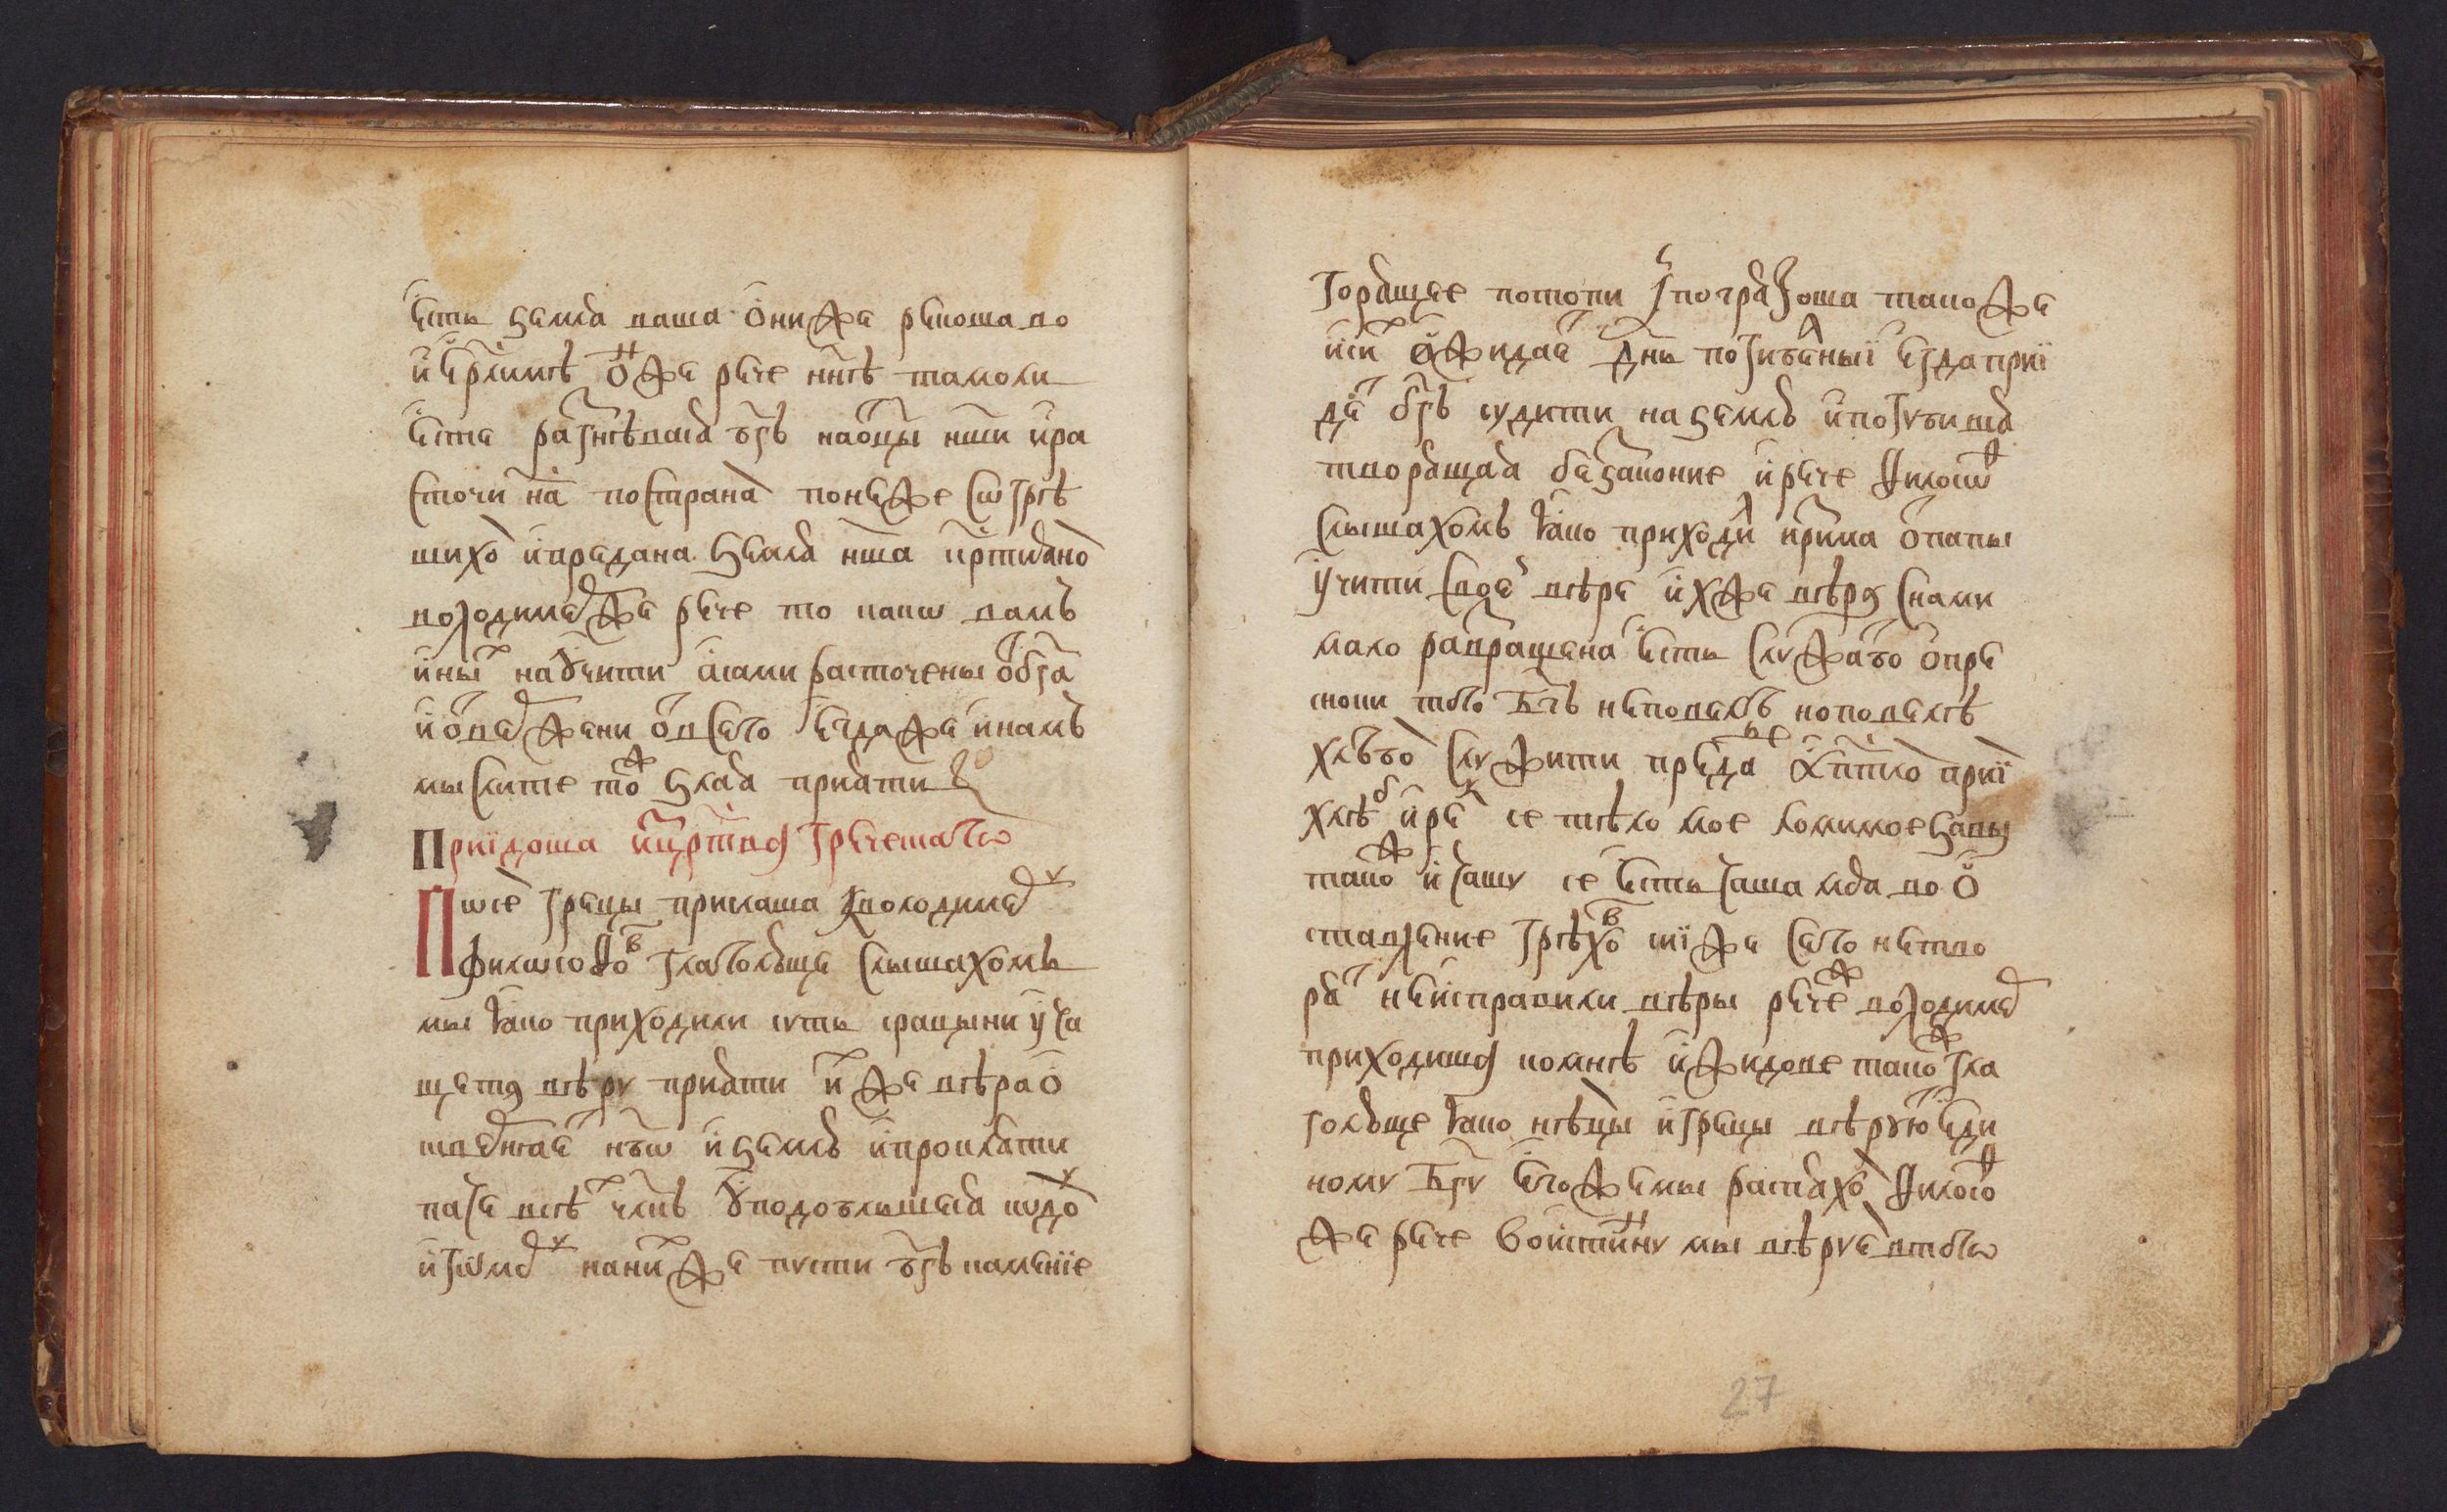 есть земля ваша они же рекоша во
иерлимѣ онже рече ннѣ тамоли
есте разгнѣвася бгъ наотцы нши ира
сточи на постранамъ понеже согрѣ
шихомъ ипредана земля нша хртианомъ
володимеръже рече то како вамъ
иных научити асами расточены от бга
иотвержени от всего егдаже инамъ
мыслите тоже зло прияти
Приидоша ицртвꙋ греческаго
Посе грецы прислаша кволодимеру
философовъ глаголюще слышахомъ
мы яко приходили суть срацыни ꙋча
щетя вѣру прияти ихже вѣра о
сквернꙗет нбо иземлю ипрокляти
паче всѣхъ члкъ уподобльшеся содому
игомору нанихже пусти бгъ камение
горящее потопи ипогрязоша такоже
исих ожидает днь погибелный егда прии
дет бгъ судити наземлю ипогубивша
творящая беззаконие ирече философъ
слышахомъ яко приходили изрима отпапы
ꙋчити своей вѣре ихже вѣра снами
мало развращена есть служатбо опре
сноки ихже бгъ неповелѣ ноповелѣ
хлѣбомъ служити предаде апостоломъ прием
хлѣбъ ирек се тѣло мое ломимое завы
такоже ичашу се есть чаша моя во о
ставление грѣховъ сиїже сего нетво
рят неисправили вѣры речеже володимеръ
приходиша комнѣ ижидове такоже гла
голюще яко нѣмцы игрецы вѣруют еди
ному бгу егожемы распяхомъ философъ
же рече воистинну мы вѣруемъ втого
27